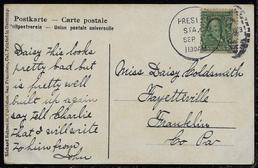 Postkarte – Carte postale
Weltpostverein – Union postale universelle
PRESI
STA.
SEP
1130AM
Daisy this looks
pretty bad but
is pretty well
built up again
say tell Charlie
that I will write
to him from
John
Miss Daisy Goldsmith
Fayetteville
Franklin
Co Pa